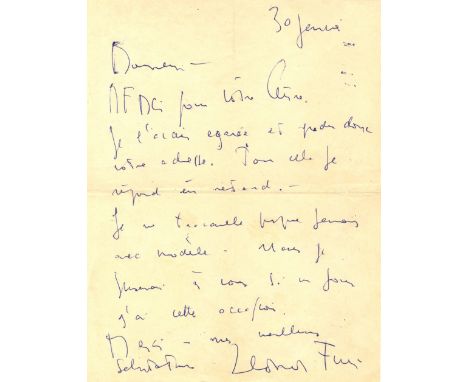 30 janvier
Monsieur -
Merci pour votre lettre.
Je l'avais egarée et perdu donc
votre adresse. Pour cela je
répond en retard. -
Je ne travaille presque jamais
avec modèle - Mais je
penserai à vous si un jour
j'ai cette occasion.
Merci - mes meilleures
salutations Leonor Fini